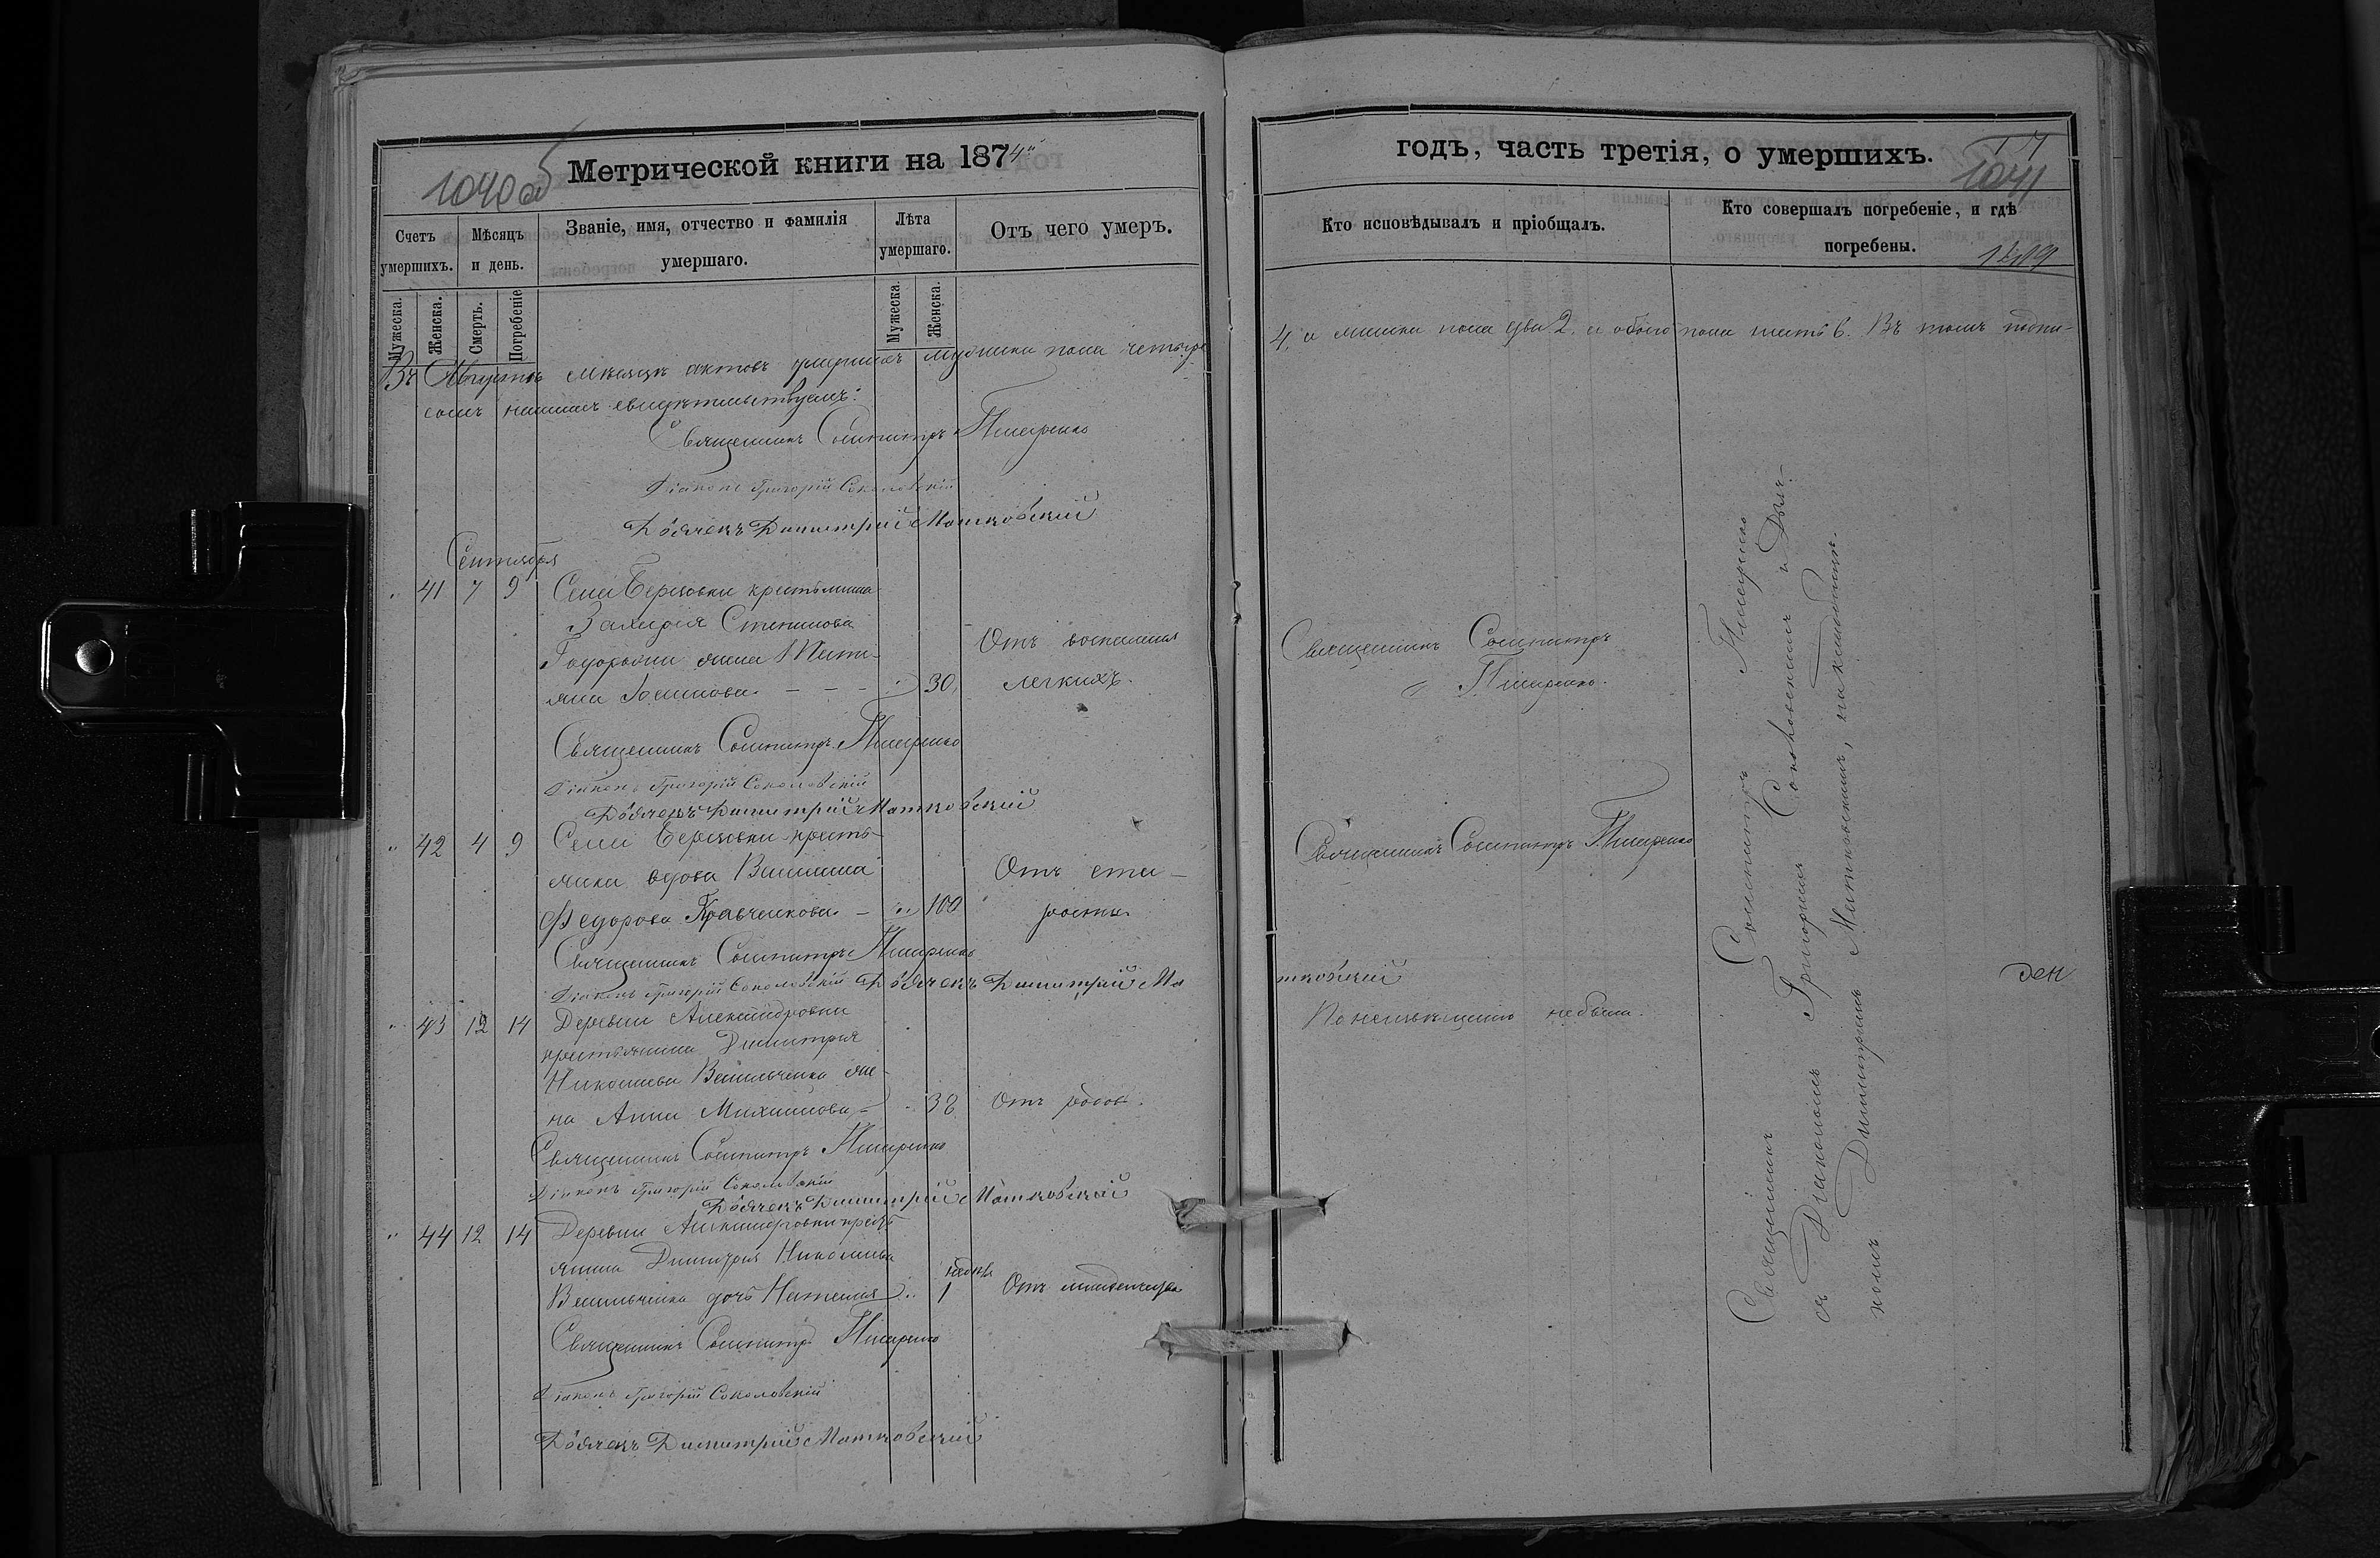 1040об
Метрической книги на 1874
Счетъ умершихъ.
Мѣсяцъ и день.
Званіе, имя, отчество и фамилія умершаго.
Лѣта умершаго.
Отъ чего умеръ.
Мужеска.
Женска.
Смерть.
Погребеніе
Мужеска.
Женска.
Въ Августѣ мѣсяцѣ актовъ умершихъ мужеска пола четыре
симъ нашимъ свидѣтельствуемъ:
Священникъ Сосипатръ Писаренко
Діаконъ Григорій Соколовскій
Дьячекъ Димитрій Матковскій
Сентября
41 7 9 Села Березовки крестьянина
Захарія Степанова
жена Татья-
30. Отъ воспаления
легкихъ.
Священникъ Сосипатръ Писаренко
Діаконъ Григорій Соколовскій
Дьячекъ Димитрій Матковскій
42 4 9 Села Березовки кресть-
янка вдова Василиса
Федорова Кравченкова. 100 Отъ ста-
рости.
Священникъ Сосипатръ Писаренко
Діаконъ Григорій Соколовскій Дьячекъ Димитрій Ма
43 12 14 Деревни Александровки
крестьянина Димитрія
Николаева Васильченка же-
на Анна Михаилова 38 Отъ родов.
Священникъ Сосипатръ Писаренко
Діаконъ Григорій Соколовскій
Дьячекъ Димитрій Матковскій
44 12 14 Деревни Александровки кресть
янина Димитрія Николаева
Васильченка дочь Наталія 1 Отъ младенчества
Священникъ Сосипатръ Писаренко
Діаконъ Григорій Соколовскій
Дьячекъ Димитрій Матковскій
годъ, часть третія, о умершихъ.
1041
Кто исповѣдывалъ и пріобщалъ.
Кто совершалъ погребеніе, и гдѣ погребены.
4, а женска пола два 2. а обоего пола шесть 6. Въ томъ подпи-
Священникъ Сосипатръ
Писаренко.
Священникъ Сосипатръ Писаренко
тковскій
не была.
Священникъ Сосипатръ Писаренко
съ Діакономъ Григориемъ Соколовскимъ и Дьяч-
комъ Димитриемъ Матковскимъ, на кладбищѣ.